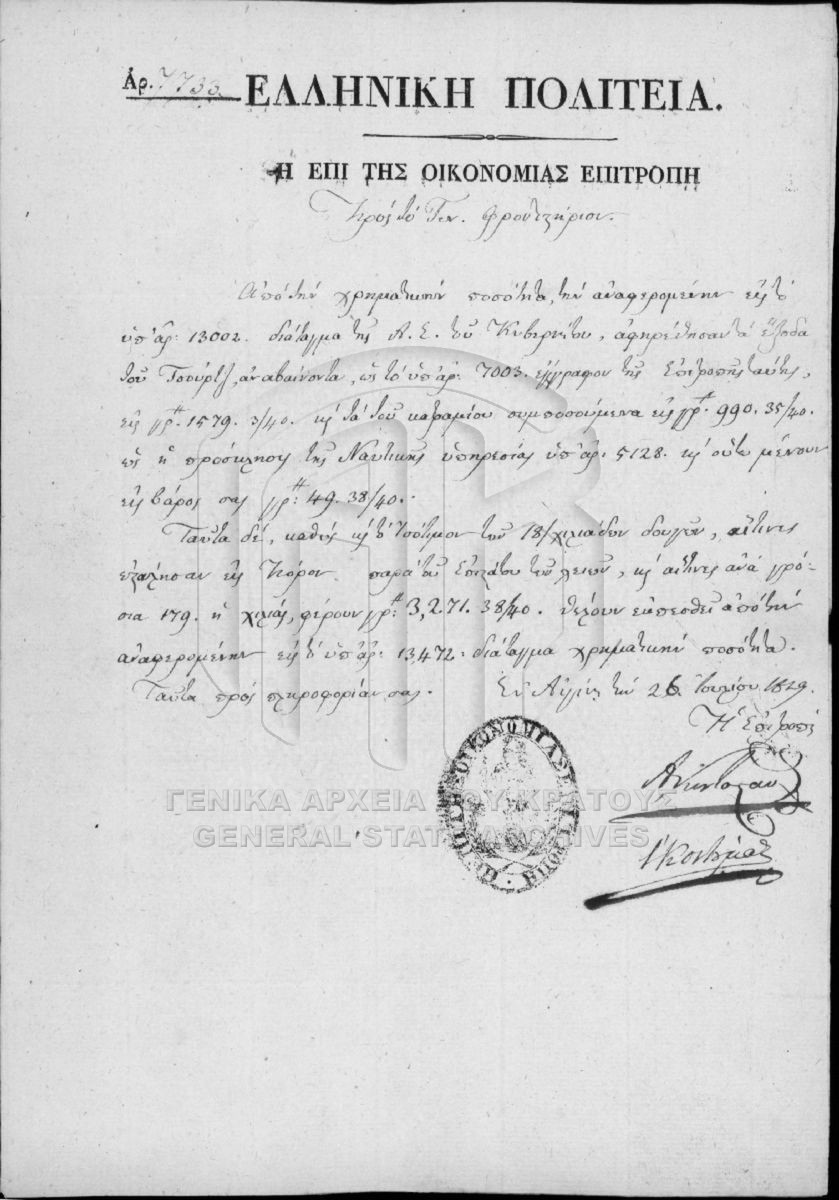 Ἀρ. 7733
ΕΛΛΗΝΙΚΗ ΠΟΛΙΤΕΙΑ.
Η ΕΠΙ ΤΗΣ ΟΙΚΟΝΟΜΙΑΣ ΕΠΙΤΡΟΠΗ
Πρὸς τὸ Γεν. Φροντιστήριον.
Ἀπὸ τὴν χρηματικὴν ποσότητα, τὴν ἀναφερομένην εἰς τὸ
ὑπ' ἀρ: 13002. διάταγμα τῆς Α. Ε. τοῦ Κυβερνήτου, ἀφῃρέθησαν τὰ ἔξοδα
τοῦ Τσούρτζ, ἀναβαίνοντα, ὡς τὸ ὑπ' ἀρ: 7003. ἔγγραφον τῆς Ἐπιτροπῆς ταύτης,
εἰς γρ: 1579. 3/40. κ' τὰ τοῦ συμποσούμενα εἰς γρ: 990. 35/40.
ὡς ἡ πρόσκλησις τῆς Ναυτικῆς ὑπηρεσίας ὑπ' ἀρ. 5128. κ' οὕτω μένουν
εἰς βάρος σας γρ: 49. 38/40.
Ταῦτα δὲ, καθὼς κ' τὸ ἰσότιμον τῶν 18/χιλιάδων δουγῶν, αἵτινες
εἰς Πόρον παρὰ τοῦ τῶν, κ' αἵτινες ἀνὰ γρό-
σια 179. ἡ χιλιὰς, φέρουν γρ: 3,271. 38/40. θέλουν ἐκπεσθεῖ ἀπὸ τὴν
ἀναφερομένην εἰς τὸ ὑπ' ἀρ: 13,472. διάταγμα χρηματικὴν ποσότητα.
Ταῦτα πρὸς πληροφορίαν σας. Ἐν Αἰγίνῃ τὴν 26 Ἰουλίου 1829.
Ἡ Ἐπιτροπὴ
Η ΕΠΙ ΤΗΣ ΟΙΚΟΝΟΜΙΑΣ ΕΠΙΤΡΟΠΗ
ΓΕΝΙΚΑ ΑΡΧΕΙΑ ΤΟΥ ΚΡΑΤΟΥΣ
GENERAL STATE ARCHIVES